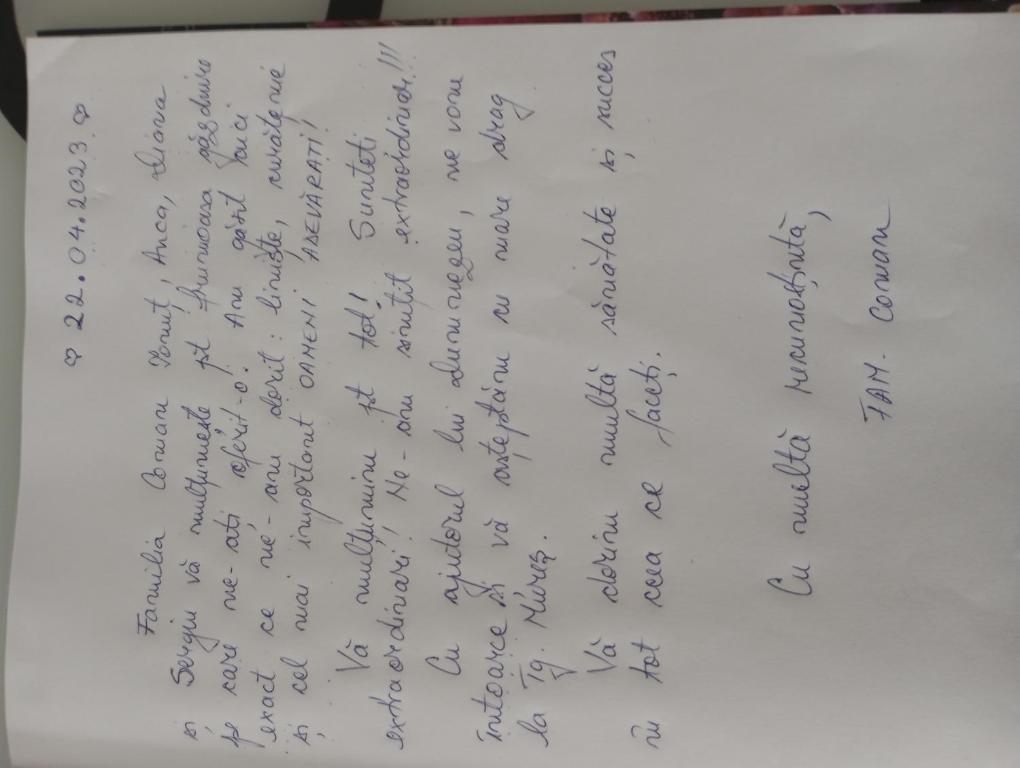 ♡ 22.04.2023 ♡
Familia Coman Ionuț, Anca, Diana
și Sergiu vă mulțumește pt frumoasa găzduire
pe care ne-ați oferit-o. Am găsit aici
exact ce ne-am dorit: liniște, curățenie
și cel mai important OAMENI ADEVĂRAȚI!
Vă mulțumim pt tot! Sunteti
extraordinari! Ne-am simțit extraordinar!!!
Cu ajutorul lui Dumnezeu, ne vom
întoarce și vă așteptăm cu mare drag
la Tg. Mureș.
Vă dorim multă sănătate și succes
în tot ceea ce faceți.
Cu multă recunoștință,
FAM. Coman